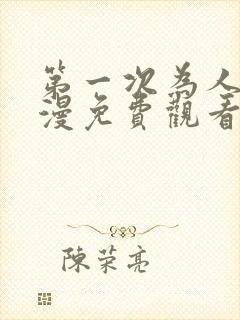 第一次為人
漫免費觀看
陳荣亮